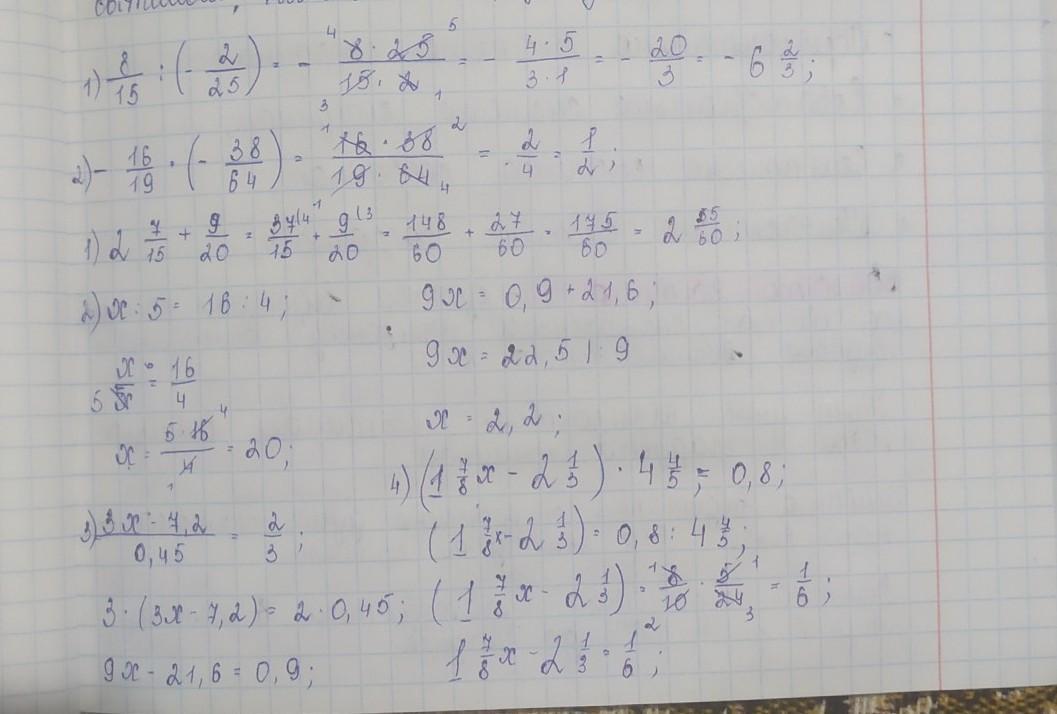 1) 8/15 : (- 2/25) = - 8·25/15·2 = - 4·5/3·1 = - 20/3 = - 6 2/3;
2) - 16/19 · (- 38/64) = 16·38/19·64 = 2/4 = 1/2;
1) 2 7/15 + 9/20 = 37/15 + 9/20 = 148/60 + 27/60 = 175/60 = 2 55/60;
2) x : 5 = 16 : 4;
x/5 = 16/4
x = 5·16/4 = 20;
3) 3x - 7,2/0,45 = 2/3;
3·(3x - 7,2) = 2·0,45;
9x - 21,6 = 0,9;
9x = 0,9 + 21,6;
9x = 22,5 | : 9
x = 2,2;
4) (1 7/8 x - 2 1/3) · 4 4/5 = 0,8;
(1 7/8 x - 2 1/3) = 0,8 : 4 4/5;
(1 7/8 x - 2 1/3) = 8/10 · 5/24 = 1/6;
1 7/8 x - 2 1/3 = 1/6;